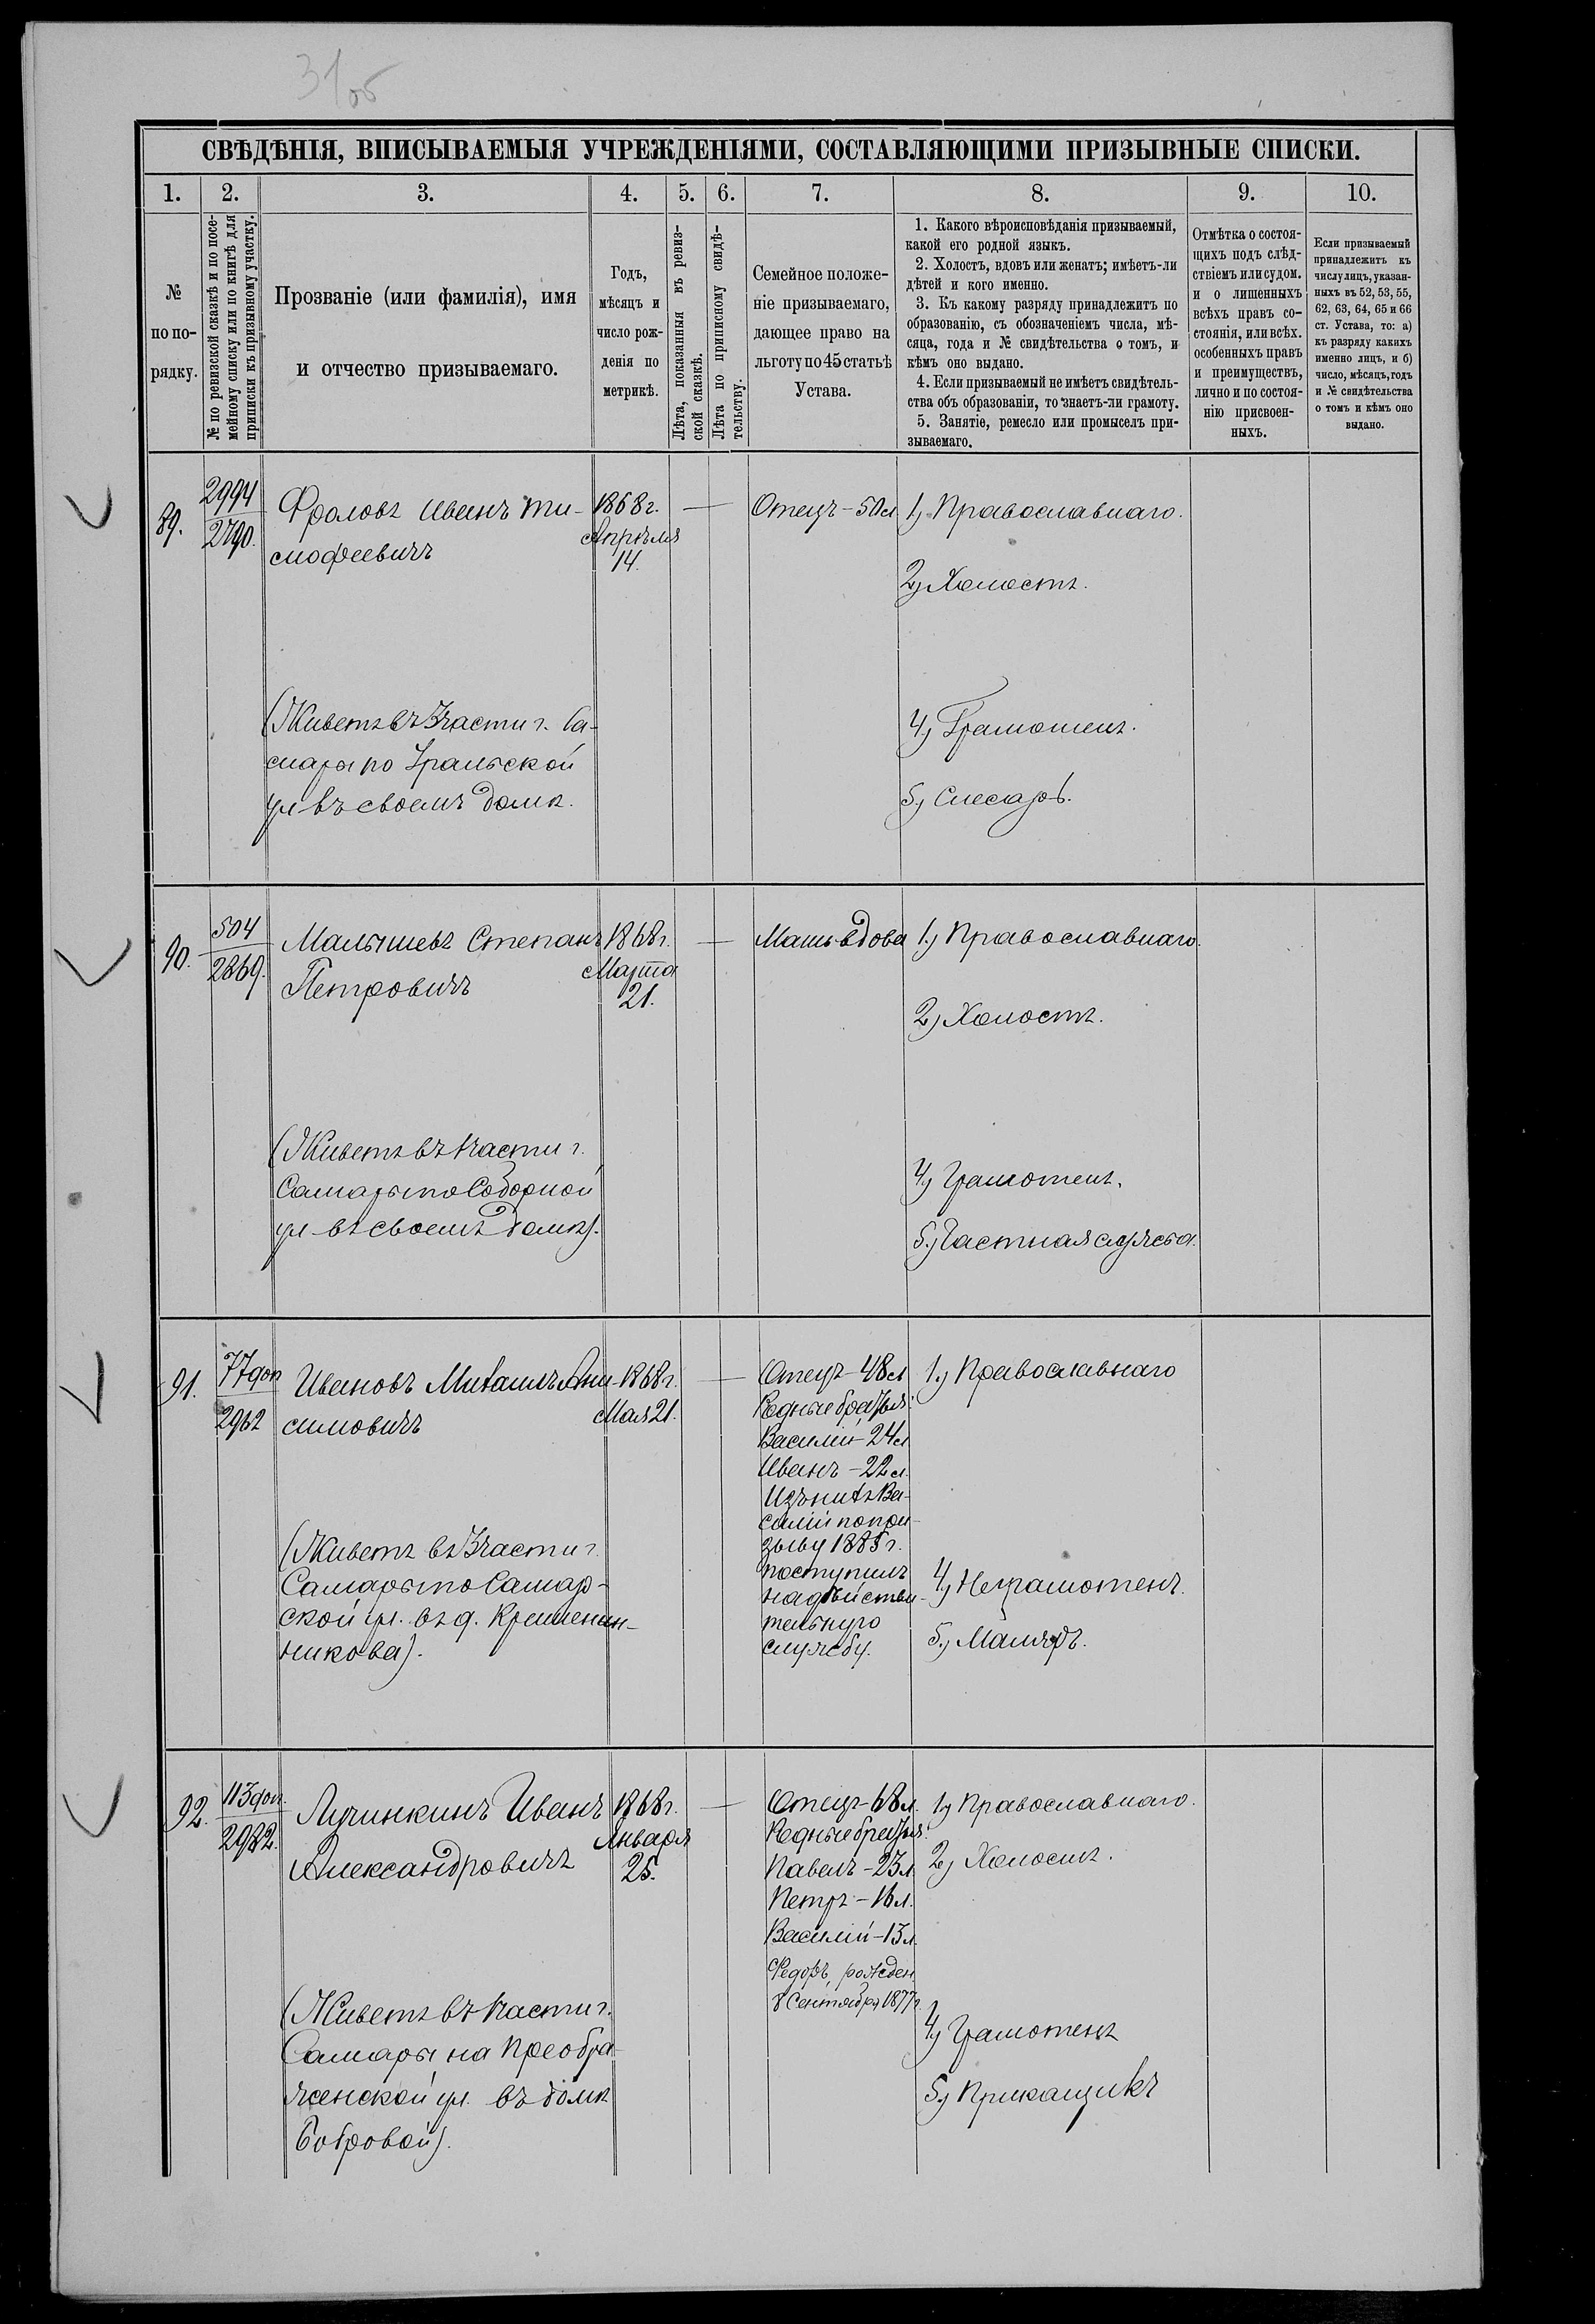 31об
СВѢДѢНІЯ, ВПИСЫВАЕМЫЯ УЧРЕЖДЕНІЯМИ, СОСТАВЛЯЮЩИМИ ПРИЗЫВНЫЕ СПИСКИ.
1.
2.
3.
4.
5.
6.
7.
8.
9.
10.
№
по по-
рядку.
№ по ревизской сказкѣ и по посе-
мейному списку или по книгѣ для
приписки къ призывному участку.
Прозваніе (или фамилія), имя
и отчество призываемаго.
Годъ,
мѣсяцъ и
число рож-
денія по
метрикѣ.
Лѣта, показанныя въ ревиз-
ской сказкѣ.
Лѣта по приписному свидѣ-
тельству.
Семейное положе-
ніе призываемаго,
дающее право на
льготу по 45 статьѣ
Устава.
1. Какого вѣроисповѣданія призываемый,
какой его родной языкъ.
2. Холостъ, вдовъ или женатъ; имѣетъ-ли
дѣтей и кого именно.
3. Къ какому разряду принадлежитъ по
образованію, съ обозначеніемъ числа, мѣ-
сяца, года и № свидѣтельства о томъ, и
кѣмъ оно выдано.
4. Если призываемый не имѣетъ свидѣтель-
ства объ образованіи, то знаетъ-ли грамоту.
5. Занятіе, ремесло или промыселъ при-
зываемаго.
Отмѣтка о состоя-
щихъ подъ слѣд-
ствіемъ или судом.
и о лишенныхъ
всѣхъ правъ со-
стоянія, или всѣх.
особенныхъ правъ
и преимуществъ,
лично и по состоя-
нію присвоен-
ныхъ.
Если призываемый
принадлежитъ къ
числу лицъ, указан-
ныхъ въ 52, 53, 55,
62, 63, 64, 65 и 66
ст. Устава, то: а)
къ разряду какихъ
именно лицъ, и б)
число, мѣсяцъ, годъ
и № свидѣтельства
о томъ и кѣмъ оно
выдано.
89.
2994
2790.
Фроловъ Иванъ Ти-
мофеевичъ
(Живетъ въ 3 части г. Са-
мары по Уральской
ул въ своемъ домѣ.
1868 г.
Апрѣля
14.
Отецъ - 50 л
1) Православнаго.
2) Холостъ.
4) Грамотенъ.
5) Слесарь.
90.
504
2869.
Малышевъ Степанъ
Петровичъ
(Живетъ въ 1 части г.
Самары по Соборной
ул въ своемъ домѣ).
1868 г.
Марта
21.
Мать вдова
1) Православнаго.
2) Холостъ.
4) Грамотенъ.
5) Частная служба.
91.
77 доп
2962
Ивановъ Михаилъ Ани-
симовичъ
(Живетъ въ 3 части г.
Самары по Самар-
ской ул. въ д. Кременин-
никова).
1868 г.
Мая 21.
Отецъ - 48 л
Родные братья:
Василій - 24 л
Иванъ - 22 л.
Изъ нихъ Ва-
силій по при-
зыву 1885 г.
поступилъ
на дѣйстви-
тельную
службу.
1) Православнаго
4) Неграмотенъ.
5) Маляръ.
92.
113 доп.
2982.
Лучинкинъ Иванъ
Александровичъ
(Живетъ въ 1 части г.
Самары, на Преобра-
женской ул. въ домѣ
Бобровой).
1868 г.
Января
25.
Отецъ - 68 л.
Родные братья:
Павелъ - 23 л.
Петръ - 16 л.
Василій - 13 л.
Федоръ, рожден
8 Сентября 1877 г.
1) Православнаго.
2) Холостъ.
4) Грамотенъ
5) Прикащикъ